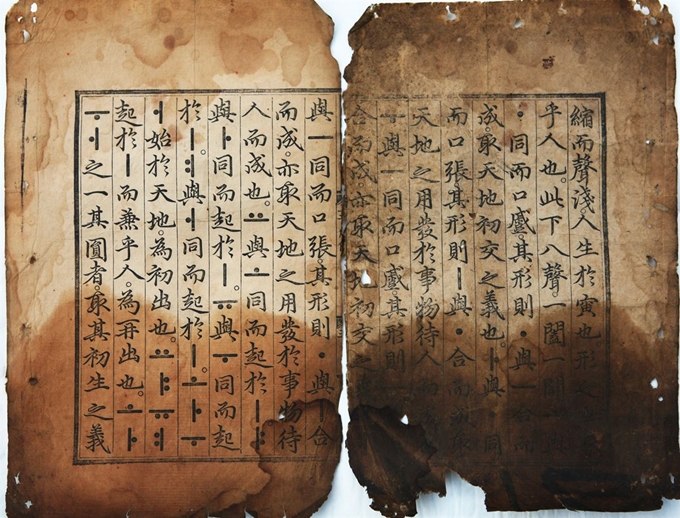 縮而聲淺。人生於寅也形
乎人也。此下八聲。一闔一闢
・同而口蹙。其形則・與ㅡ合而
成。取天地初交之義也。ㅏ與・同
而口張。其形則ㅣ與・合而成。取
天地之用發於事物待人而成
ㅜ與ㅡ同而口蹙。其形則ㅡ
合而成。亦取天地初交之
與ㅡ同而口張。其形則・與ㅣ合
而成。亦取天地之用發於事物待
人而成也。ㅛ與ㅗ同而起於ㅣ。ㅑ
與ㅏ同而起於ㅣ。ㅠ與ㅜ同而起
於ㅣ。ㅕ與ㅓ同而起於ㅣ。ㅗㅏㅜ
ㅓ始於天地。為初出也。ㅛㅑㅠㅕ
起於ㅣ而兼乎人。為再出也。ㅗㅏ
ㅜㅓ之一其圓者。取其初生之義